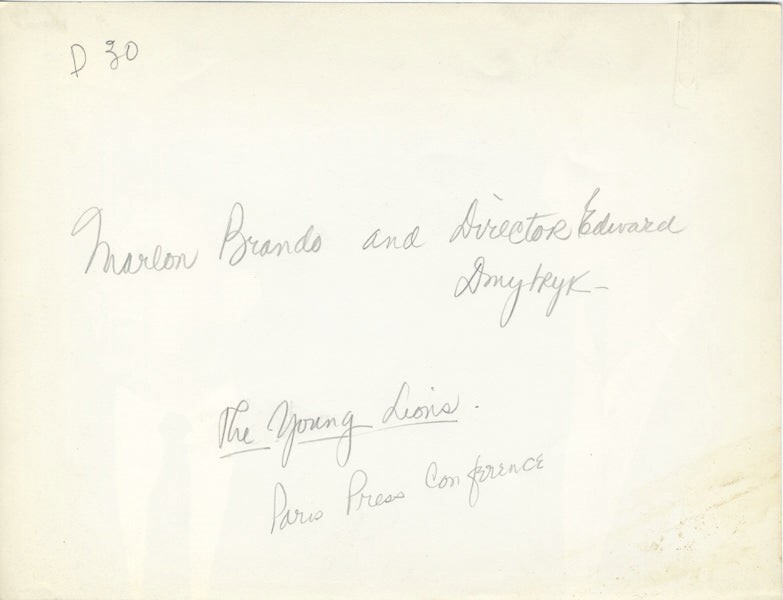 D 30
Marlon Brando and Director Edward
Dmytryk-
The Young Lions.
Paris Press Conference